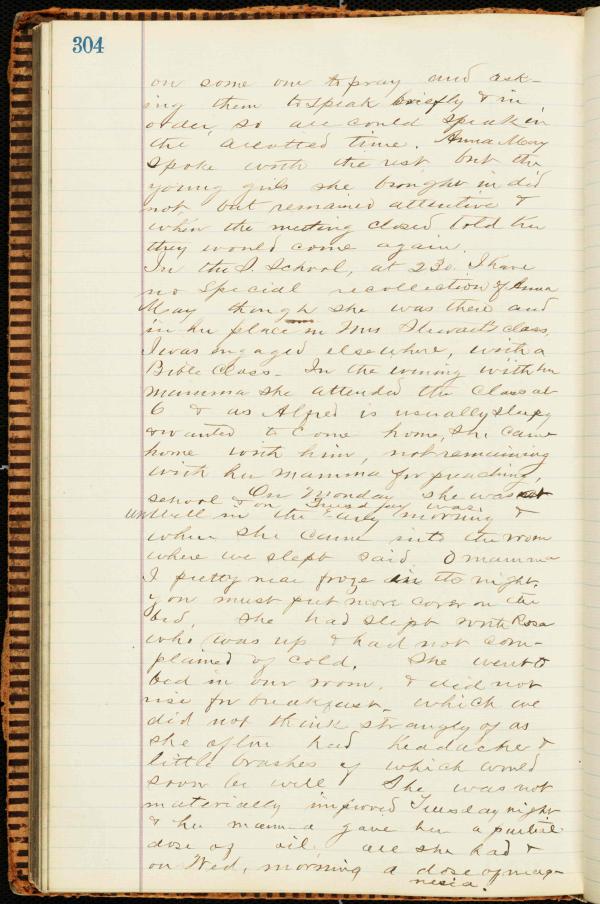 304
on some one to pray and ask-
ing them to speak briefly & in
order, so all could speak in
the alotted time. Anna May
spoke with the rest but the
young girls she brought in did
not, but remained attentive &
when the meeting closed told her
they would come again.
In the S. School, at 2 30. I have
no special recollection of Anna
May though she was there and
in her place in Mrs Stewart's class,
I was engaged elsewhere, with a
Bible Class - In the evening with her
mamma she attended the class at
6 & as Alfred is usually sleepy
& wanted to come home, she came
home with him, not remaining
with her mamma for preaching,
On Monday she was at
school & on Tuesday was
unwell in the early morning &
when she came into the room
where we slept said O mamma
I pretty near froze in the night.
you must put more cover on the
bed, She had slept with Rosa
who was up & had not com-
plained of cold. She went to
bed in our room, & did not
rise for breakfast - which we
did not think strangly of as
she often had headache &
little brashes of which would
soon be well She was not
materially improved Tuesday night
& her mamma gave her a partial
dose of oil all she had &
on Wed, morning a dose of mag-
nesia.